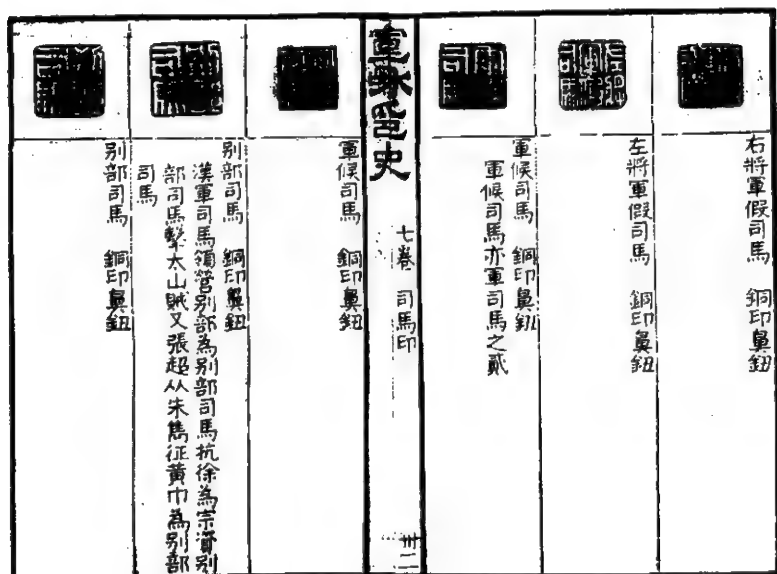 右將軍假司馬　銅印鼻鈕
左將軍假司馬　銅印鼻鈕
軍候司馬　銅印鼻鈕
軍候司馬亦軍司馬之貳
七卷　司馬印
卅二
軍候司馬　銅印鼻鈕
别部司馬　銅印鼻鈕
漢軍司馬領營别部為别部司馬抗徐為宗資别
部司馬擊太山賊又張超从朱雋征黃巾為别部
司馬
别部司馬　銅印鼻鈕